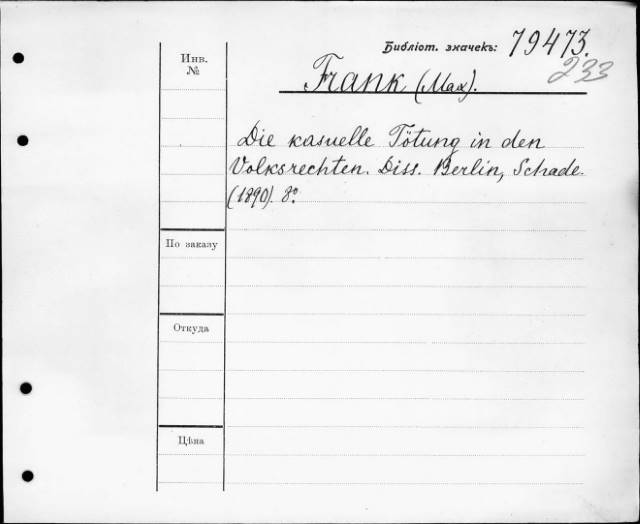 Библіот. значекъ: 79473.
233
Инв.
№
Frank (Max).
Die kasuelle Tötung in den
Volksrechten. Diss. Berlin, Schade.
(1890). 8º.
По заказу
Откуда
Цѣна